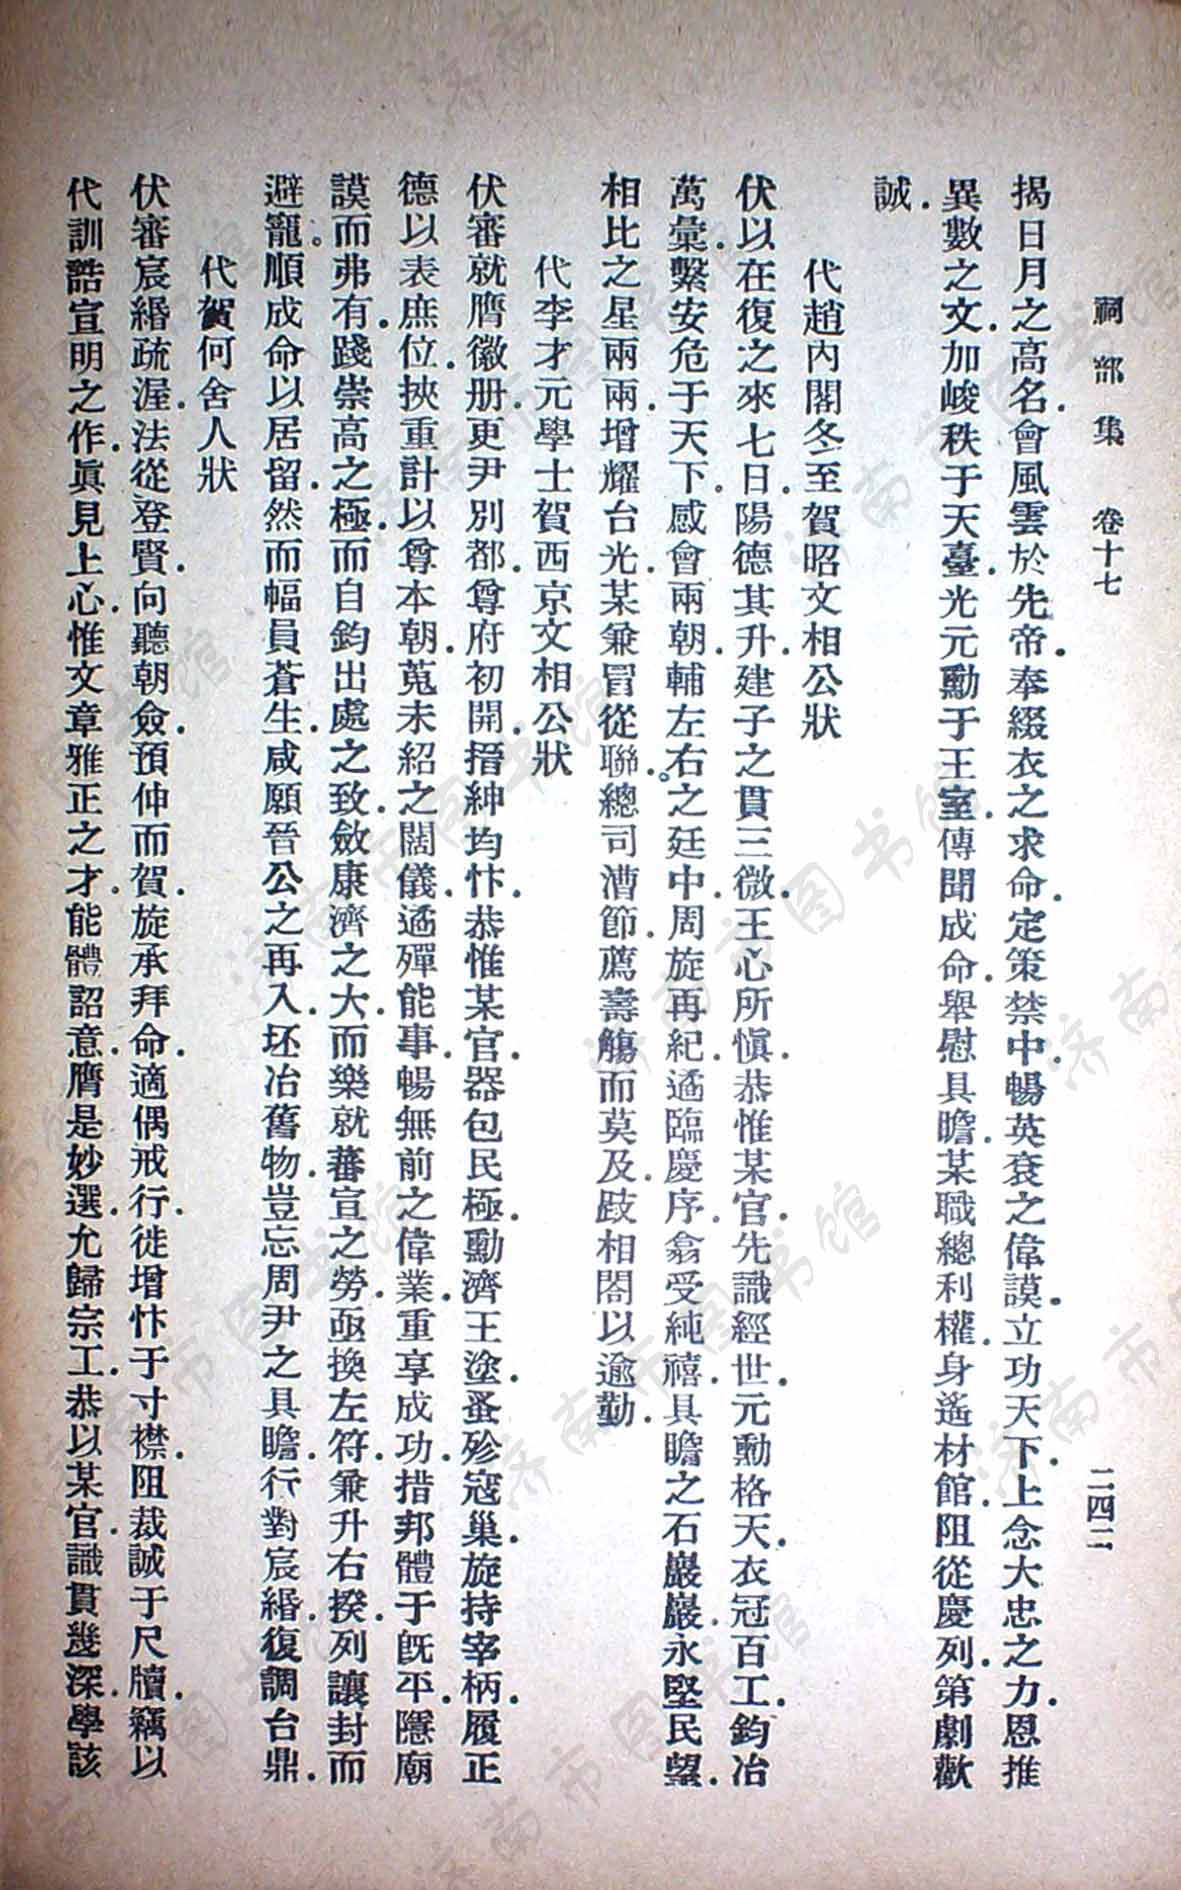 祠部集 卷十七 二四二
揭日月之高名．會風雲於先帝．奉綴衣之求命．定策禁中．暢英袞之偉謨．立功天下．上念大忠之力．恩推
異數之文．加峻秩于天臺．光元勳于王室．傳聞成命．舉慰具瞻．某職總利權．身遙材館．阻從慶列．第劇歡
誠．
代趙內閣冬至賀昭文相公狀
伏以在復之來七日．陽德其升．建子之貫三微．王心所愼．恭惟某官．先識經世．元勳格天．衣冠百工．鈞冶
萬彙．繫安危于天下．感會兩朝．輔左右之廷中．周旋再紀．遹臨慶序．翕受純禧．具瞻之石巖巖．永堅民望．
相比之星兩兩．增耀台光．某兼冒從聯．總司漕節．薦壽觴而莫及．跂相閤以逾勤．
代李才元學士賀西京文相公狀
伏審就膺徽册．更尹別都．尊府初開．搢紳均忭．恭惟某官．器包民極．勳濟王塗．蚤殄寇巢．旋持宰柄．履正
德以表庶位．挾重計以尊本朝．蒐未紹之闊儀．遹殫能事．暢無前之偉業．重享成功．措邦體于旣平．隱廟
謨而弗有．踐崇高之極．而自鈞出處之致．斂康濟之大．而樂就蕃宣之勞．亟換左符．兼升右揆．列讓封而
避寵。順成命以居留．然而幅員蒼生．咸願晉公之再入．坯冶舊物．豈忘周尹之具瞻．行對宸緡．復調台鼎．
代賀何舍人狀
伏審宸緡疏渥．法從登賢．向聽朝僉．預伸而賀．旋承拜命．適偶戒行．徙增忭于寸襟．阻裁誠于尺牘．竊以
代訓誥宣明之作．眞見上心．惟文章雅正之才．能體詔意．膺是妙選．允歸宗工．恭以某官．識貫幾深．學該